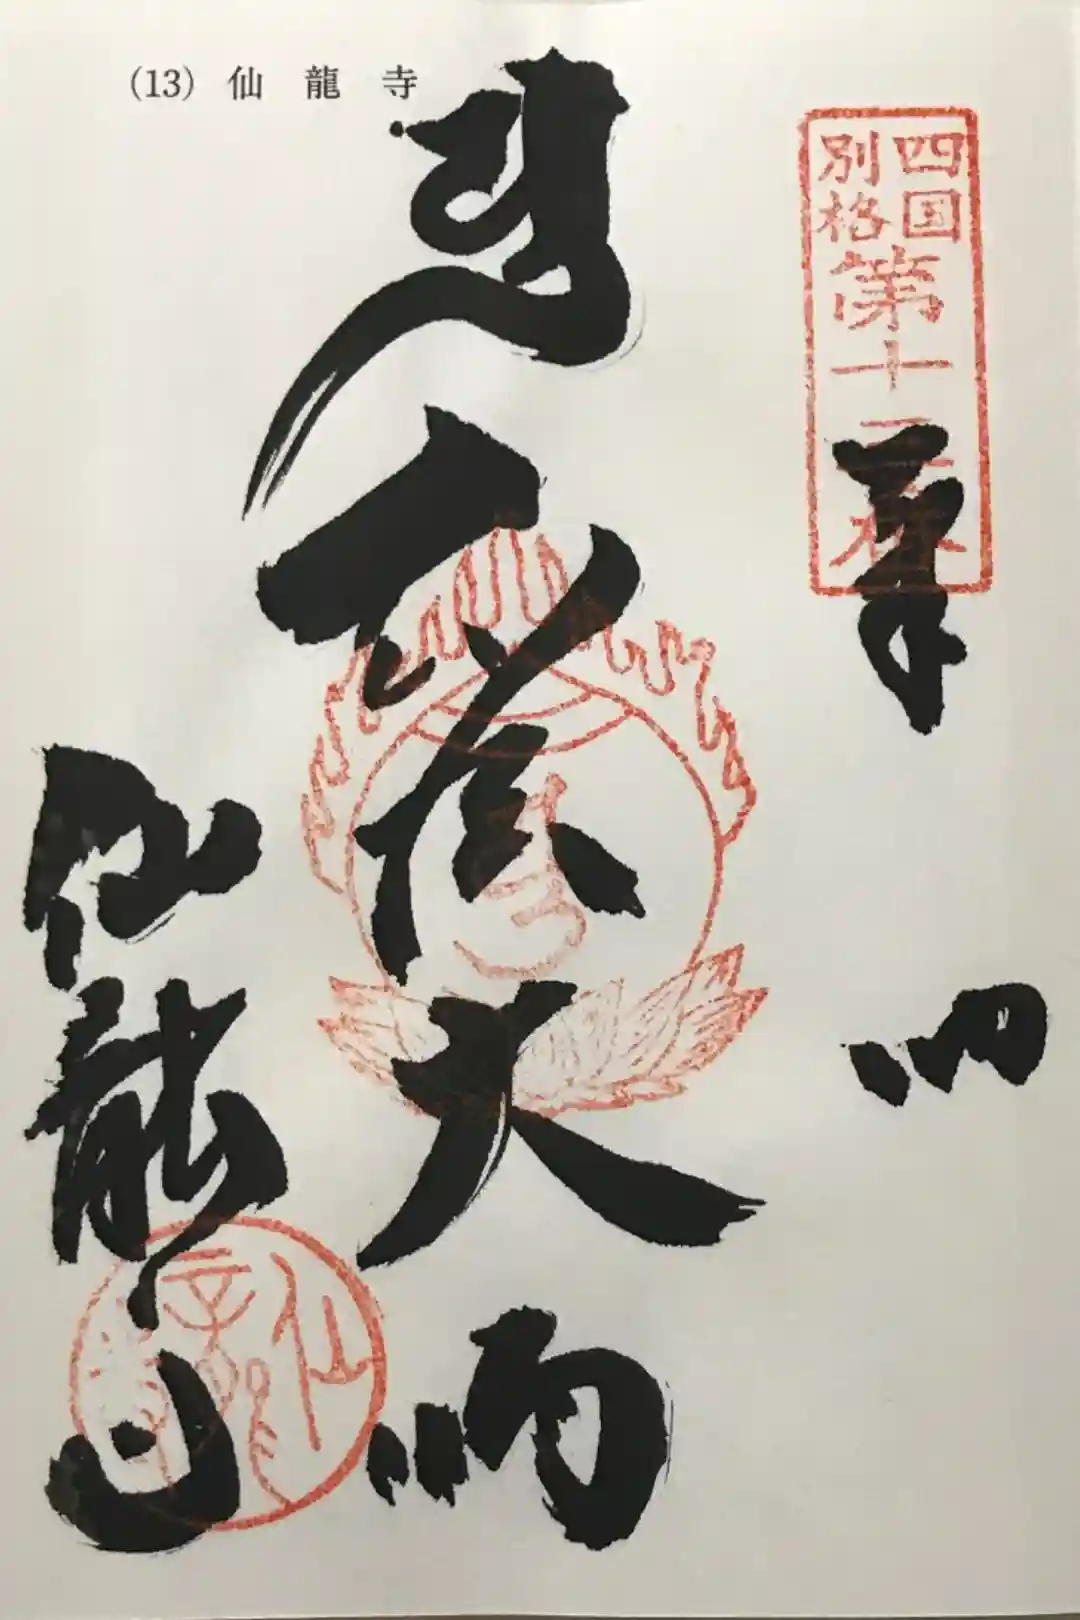 (13) 仙龍寺
四国
別格
第十三番
奉
納
大師
仙龍寺